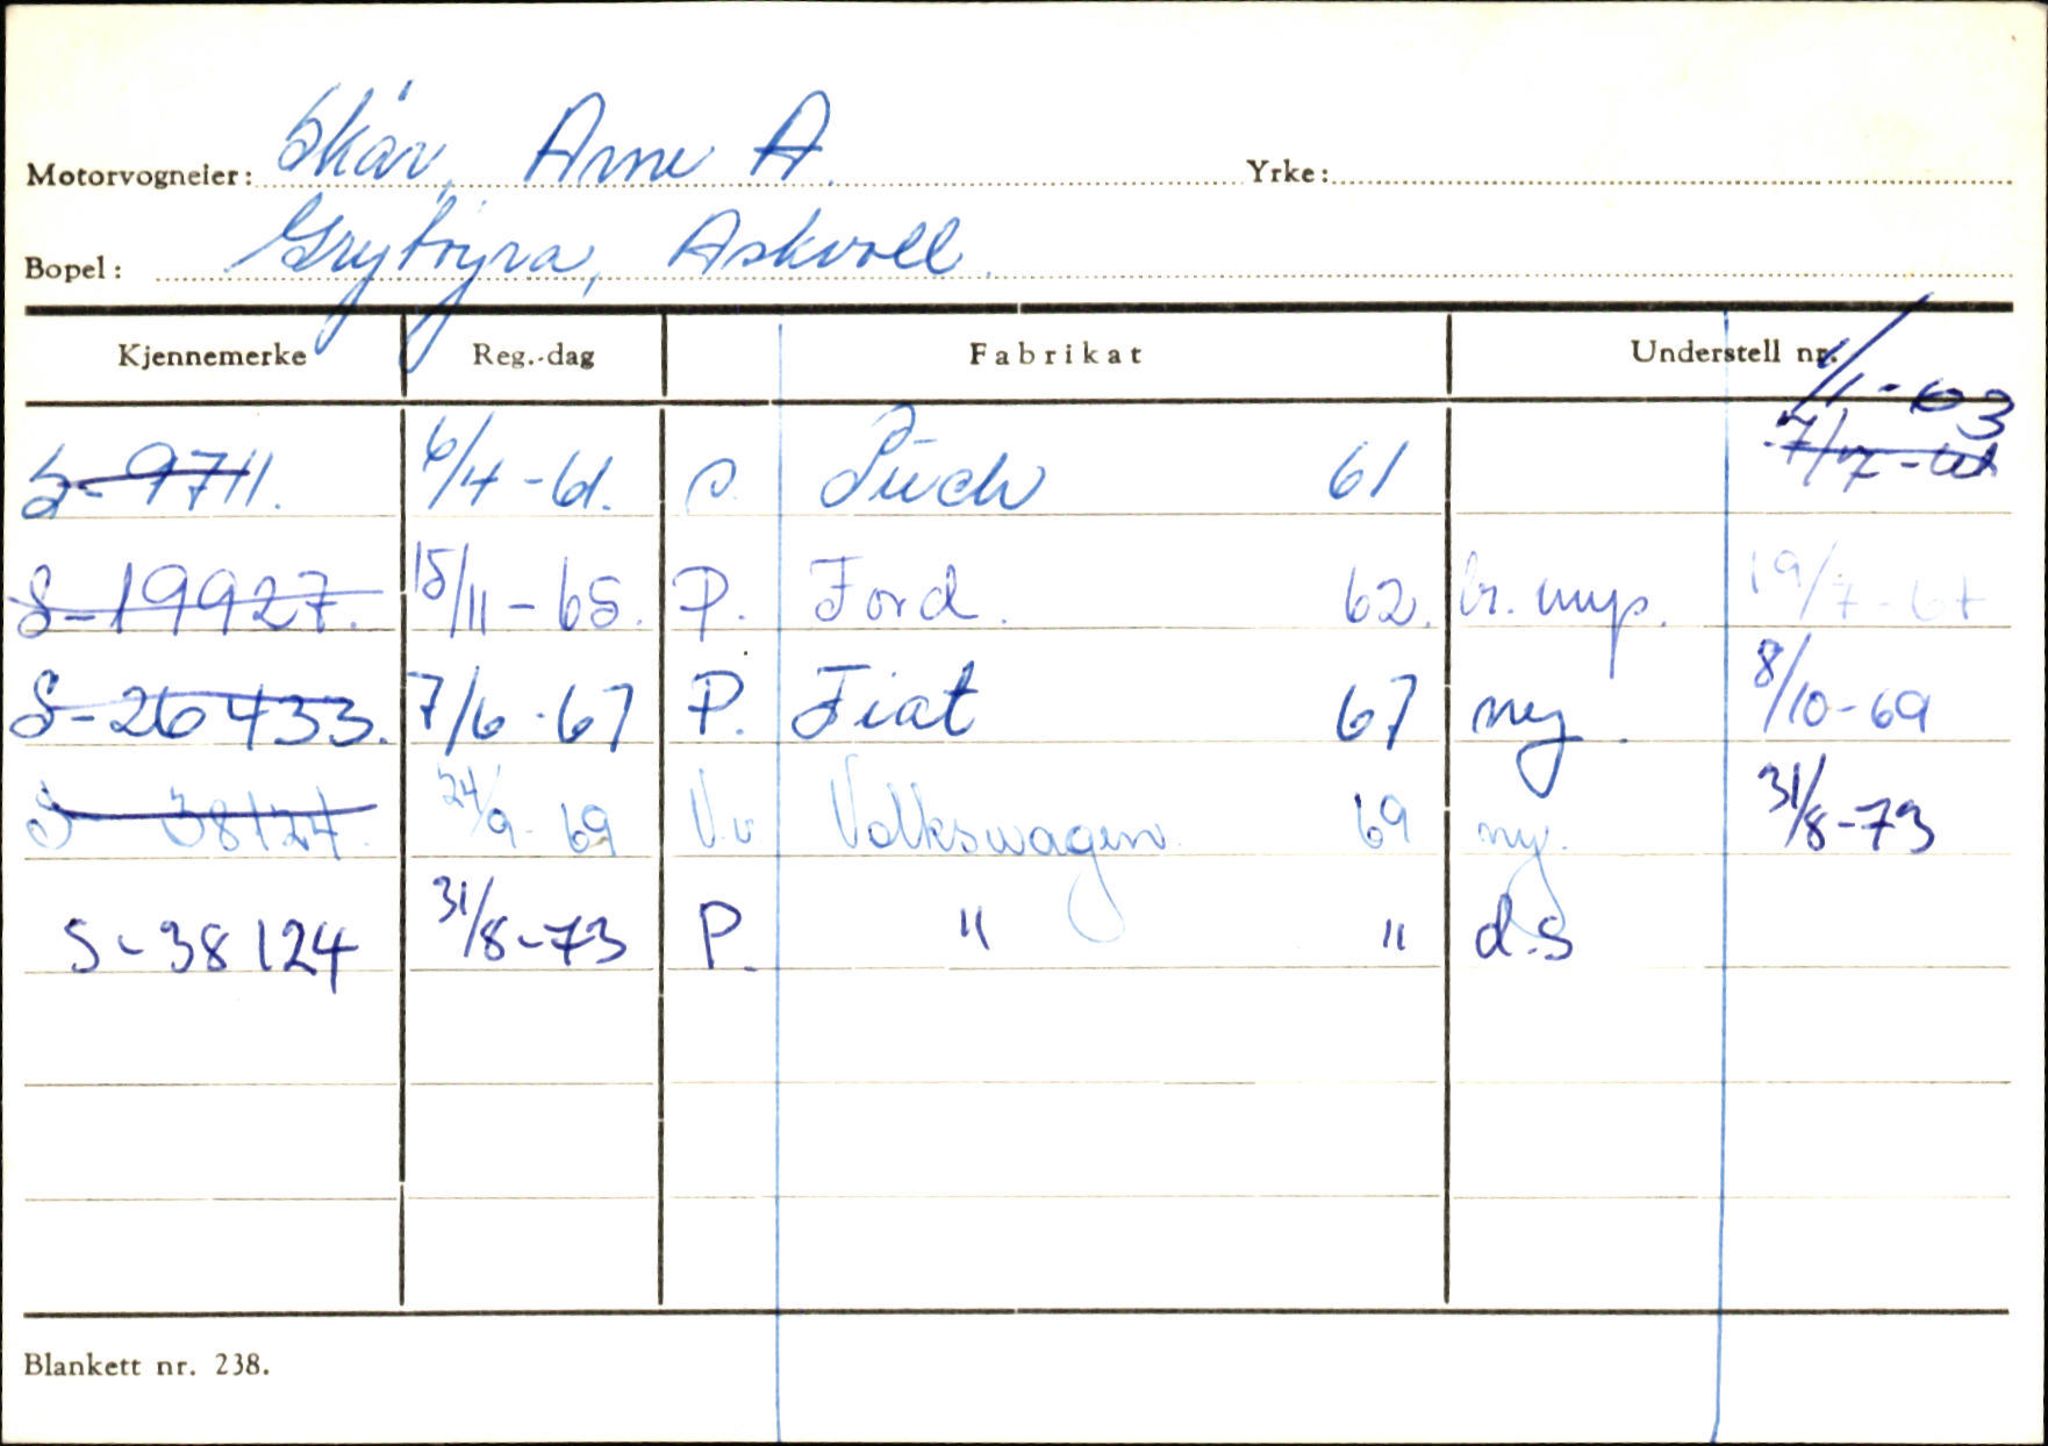 Motorvogneier: Skår, Arne A. Yrke:
Bopel: Grytøyra, Askvoll.
Kjennemerke Reg.-dag Fabrikat Understell nr.
1/1-63
S-9711. 6/4-61. s. Püch 61
S-19927. 15/11-65. P. Ford. 62. br. imp. 19/7-67
S-26433. 7/6-67 P. Fiat 67 ny. 8/10-69
S-38124. 24/9-69 V.v Volkswagen 69 ny. 31/8-73
S-38124 31/8-73 P. " " d.s
Blankett nr. 238.